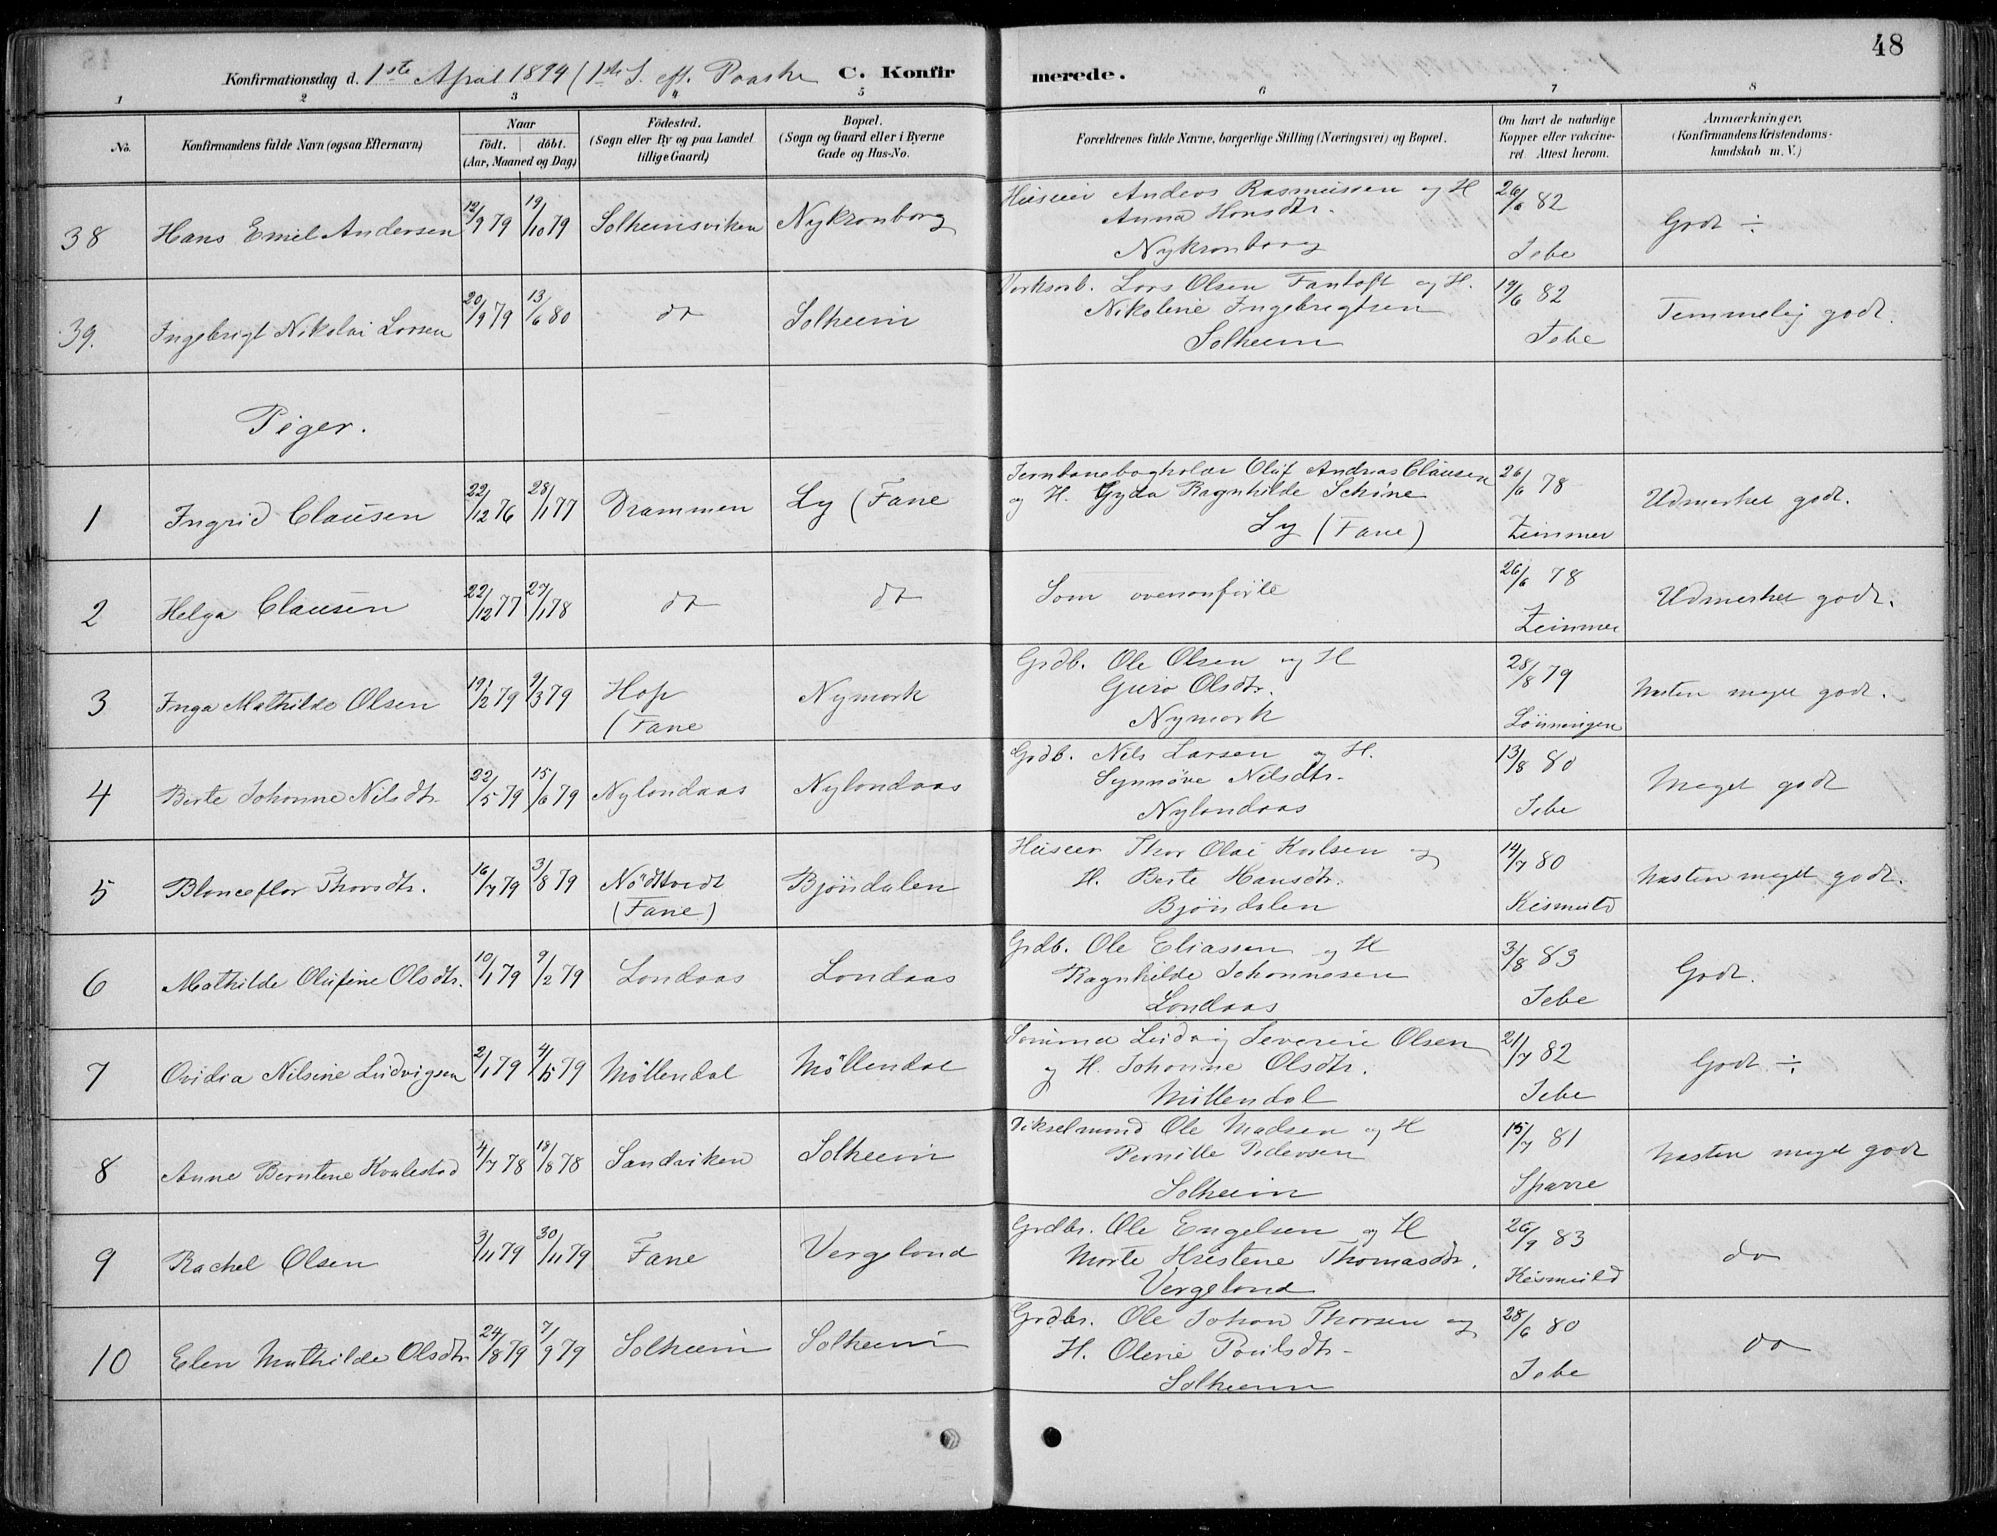 48
Konfirmationsdag d. 1ste April 1894 (1ste S. eft. Paaske C. Konfirmerede.
1 2 3 4 5 6 7 8
No. Konfirmandens fulde Navn (ogsaa Efternavn) Naar født. døbt. (Aar, Maaned og Dag) Fødested. (Sogn eller By og paa Landet tillige Gaard) Bopæl. (Sogn og Gaard eller i Byerne Gade og Hus-No. Forældrenes fulde Navne, borgerlige Stilling (Næringsvei) og Bopæl. Om havt de naturlige Kopper eller vakcineret. Attest herom. Anmærkninger. (Konfirmandens Kristendomskundskab m. V.)
38 Hans Emil Andersen 12/9 79 19/10 79 Solheimsviken Nykronborg Huseier Anders Rasmussen og H
Anna Hansdtr.
Nykronborg
26/6 82
Jebe
Godt ÷
39. Ingebrigt Nikolai Larsen 20/9 79 13/6 80 do Solheim Værksarb. Lars Olsen Fantoft og H.
Nikoline Ingebrigtsen
Solheim
19/6 82
Jebe
Temmelig godt.
Piger.
1 Ingrid Clausen 22/12 76 28/1 77 Drammen Ly (Fane Jernbanebogholder Oluf Andreas Clausen
og H. Gyda Ragnhilde Schine
Ly (Fane)
26/6 78
Zeimmer
Udmerket godt.
2 Helga Clausen 22/12 77 27/1 78 do do Som ovenanførte
26/6 78
Zeimmer
Udmerket godt.
3 Inga Mathilde Olsen 19/2 79 9/3 79 Hop
(Fane Nymark Grdb. Ole Olsen og H
Guro Olsdtr.
Nymark
28/8 79
Lönningen
Næsten meget godt.
4 Berte Johanne Nilsdtr. 22/5 79 15/6 79 Nylandaas Nylandaas Grdb. Nils Larsen og H.
Synnøve Nilsdtr.
Nylandaas
13/8 80
Jebe
Meget godt
5 Blanceflor Thorsdtr. 16/7 79 3/8 79 Nödtvedt
(Fane) Bjöndalen Huseier Thor Olai Karlsen og
H. Berte Hansdtr.
Bjöndalen
14/7 80
Kismuld
Næsten meget godt.
6 Mathilde Olufine Olsdtr. 10/1 79 9/2 79 Landaas Landaas Grdb. Ole Eliassen og H
Ragnhilde Johannesen
Landaas
3/8 83
Jebe
Godt.
7 Ovidia Nilsine Ludvigsen 2/1 79 4/5 79 Möllendal Möllendal Sömmd Ludvig Severin Olsen
og H. Johanne Olsdtr.
Möllendal
21/7 82
Jebe
Godt ÷
8 Anne Berntine Kvalestad 4/7 78 18/8 78 Sandviken Solheim Vikselmand Ole Madsen og H
Pernille Pedersen
Solheim
15/7 81
Sparre
Næsten meget godt
9 Rachel Olsen 3/11 79 30/11 79 Fane Vergeland Grdbr. Ole Engelsen og H
Marte Kristene Thomasdtr.
Vergeland
26/9 83
Kismuld
do
10 Elen Mathilde Olsdtr. 24/8 79 7/9 79 Solheim Solheim Grdbr. Ole Johan Thorsen og
H. Oline Poulsdtr.
Solheim
28/6 80
Jebe
do